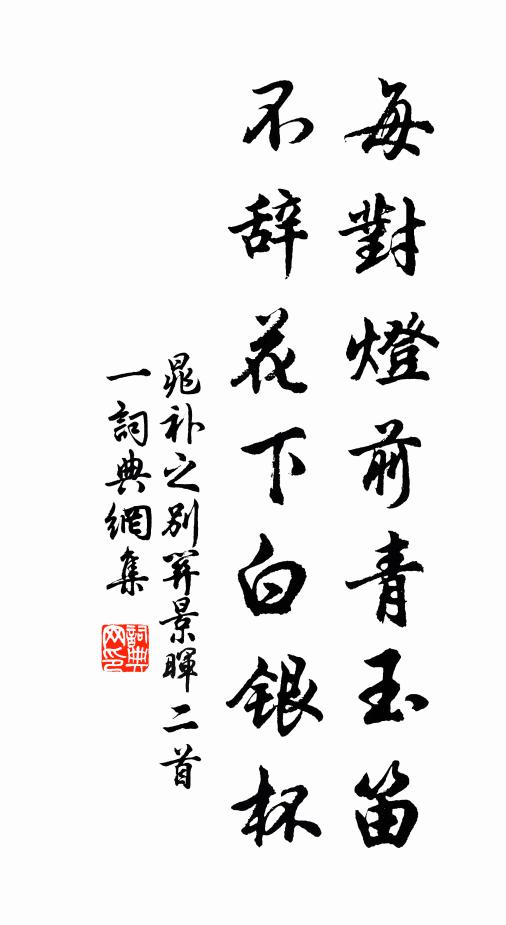 每對燈前青玉笛
不辞花下白銀杯
晁补之别羿景暉二首
一詞典網集
詞典
網印